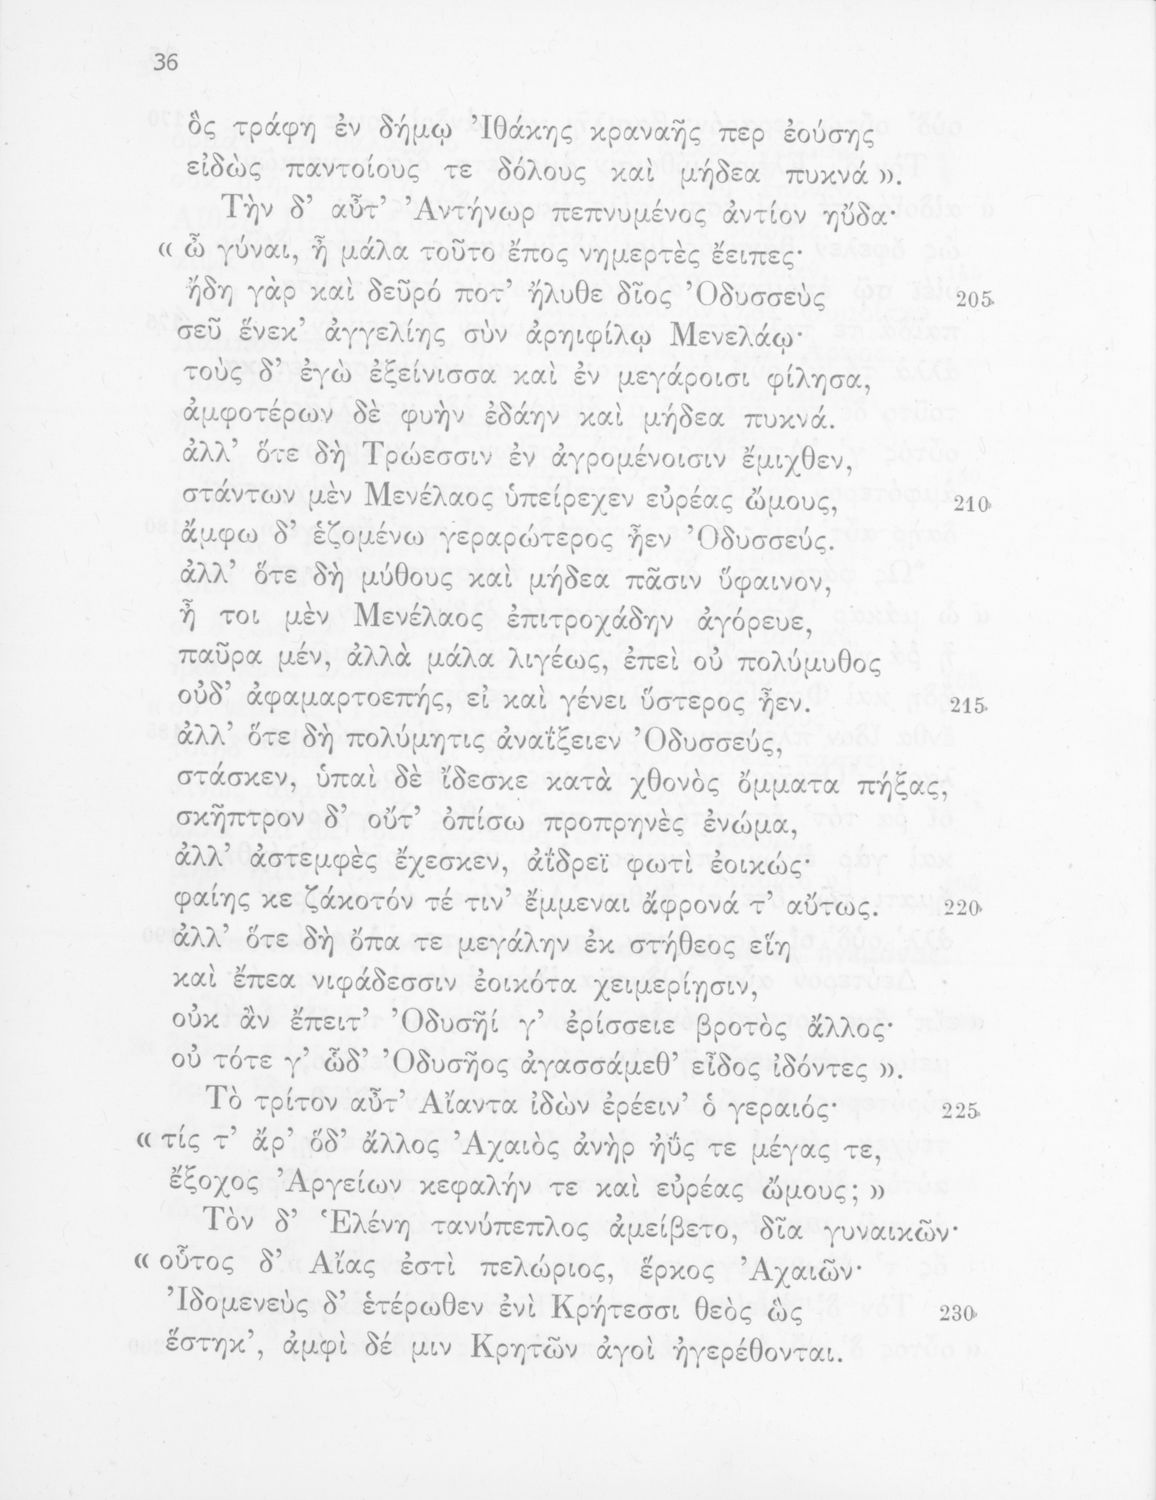 36
ὃς τράφη ἐν δήμῳ Ἰθάκης κραναῆς περ ἐούσης
εἰδὼς παντοίους τε δόλους καὶ μήδεα πυκνά ».
Τὴν δ’ αὖτ’ Ἀντήνωρ πεπνυμένος ἀντίον ηὔδα·
« ὦ γύναι, ἦ μάλα τοῦτο ἔπος νημερτὲς ἔειπες·
ἤδη γὰρ καὶ δεῦρό ποτ’ ἤλυθε δῖος Ὀδυσσεὺς 205
σεῦ ἕνεκ’ ἀγγελίης σὺν ἀρηιφίλῳ Μενελάῳ·
τοὺς δ’ ἐγὼ ἐξείνισσα καὶ ἐν μεγάροισι φίλησα,
ἀμφοτέρων δὲ φυὴν ἐδάην καὶ μήδεα πυκνά.
ἀλλ’ ὅτε δὴ Τρώεσσιν ἐν ἀγρομένοισιν ἔμιχθεν,
στάντων μὲν Μενέλαος ὑπείρεχεν εὐρέας ὤμους, 210
ἄμφω δ’ ἑζομένω γεραρώτερος ἦεν Ὀδυσσεύς.
ἀλλ’ ὅτε δὴ μύθους καὶ μήδεα πᾶσιν ὕφαινον,
ἦ τοι μὲν Μενέλαος ἐπιτροχάδην ἀγόρευε,
παῦρα μέν, ἀλλὰ μάλα λιγέως, ἐπεὶ οὐ πολύμυθος
οὐδ’ ἀφαμαρτοεπής, εἰ καὶ γένει ὕστερος ἦεν. 215
ἀλλ’ ὅτε δὴ πολύμητις ἀναΐξειεν Ὀδυσσεύς,
στάσκεν, ὑπαὶ δὲ ἴδεσκε κατὰ χθονὸς ὄμματα πήξας,
σκῆπτρον δ’ οὔτ’ ὀπίσω προπρηνὲς ἐνώμα,
ἀλλ’ ἀστεμφὲς ἔχεσκεν, ἀΐδρεϊ φωτὶ ἐοικώς·
φαίης κε ζάκοτόν τέ τιν’ ἔμμεναι ἄφρονά τ’ αὔτως. 220
ἀλλ’ ὅτε δὴ ὄπα τε μεγάλην ἐκ στήθεος εἵη
καὶ ἔπεα νιφάδεσσιν ἐοικότα χειμερίῃσιν,
οὐκ ἂν ἔπειτ’ Ὀδυσῆΐ γ’ ἐρίσσειε βροτὸς ἄλλος·
οὐ τότε γ’ ὧδ’ Ὀδυσῆος ἀγασσάμεθ’ εἶδος ἰδόντες ».
Τὸ τρίτον αὖτ’ Αἴαντα ἰδὼν ἐρέειν’ ὁ γεραιός· 225
« τίς τ’ ἄρ’ ὅδ’ ἄλλος Ἀχαιὸς ἀνὴρ ἠΰς τε μέγας τε,
ἔξοχος Ἀργείων κεφαλήν τε καὶ εὐρέας ὤμους; »
Τὸν δ’ Ἑλένη τανύπεπλος ἀμείβετο, δῖα γυναικῶν·
« οὗτος δ’ Αἴας ἐστὶ πελώριος, ἕρκος Ἀχαιῶν·
Ἰδομενεὺς δ’ ἑτέρωθεν ἐνὶ Κρήτεσσι θεὸς ὣς 230
ἕστηκ’, ἀμφὶ δέ μιν Κρητῶν ἀγοὶ ἠγερέθονται.